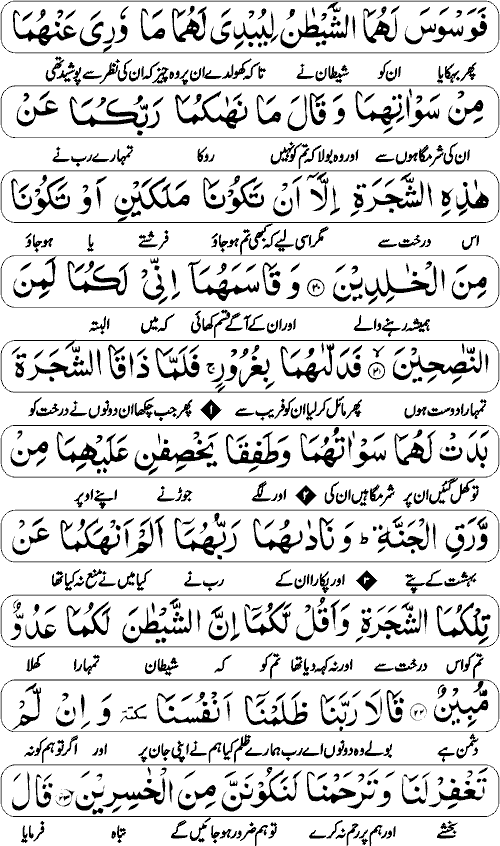 فَوَسْوَسَ لَهُمَا الشَّيْطٰنُ لِيُبْدِيَ لَهُمَا مَا وٗرِيَ عَنْهُمَا
پھر بہکایا ان کو شیطان نے تاکہ کھولدے ان پر وہ چیز کہ ان کی نظر سے پوشیدہ تھی
مِنْ سَوْاٰتِهِمَا وَقَالَ مَا نَهٰىكُمَا رَبُّكُمَا عَنْ
ان کی شرمگاہوں سے اور وہ بولا کہ تم کو نہیں روکا تمہارے رب نے
هٰذِهِ الشَّجَرَةِ اِلَّاۤ اَنْ تَكُوْنَا مَلَكَيْنِ اَوْ تَكُوْنَا
اس درخت سے مگر اسی لیے کہ کبھی تم ہو جاؤ فرشتے یا ہو جاؤ
مِنَ الْخٰلِدِيْنَ ۝۲۰ وَقَاسَمَهُمَاۤ اِنِّيْ لَكُمَا لَمِنَ
ہمیشہ رہنے والے اور ان کے آگے قسم کھائی کہ میں البتہ
النّٰصِحِيْنَ ۝۲۱ۙ فَدَلّٰىهُمَا بِغُرُوْرٍ ۚ فَلَمَّا ذَاقَا الشَّجَرَةَ
تمہارا دوست ہوں پھر مائل کر لیا ان کو فریب سے ۱ پھر جب چکھا ان دونوں نے درخت کو
بَدَتْ لَهُمَا سَوْاٰتُهُمَا وَطَفِقَا يَخْصِفٰنِ عَلَيْهِمَا مِنْ
تو کھل گئیں ان پر شرمگاہیں ان کی ۲ اور لگے جوڑنے اپنے اوپر
وَّرَقِ الْجَنَّةِ ؕ وَنَادٰىهُمَا رَبُّهُمَاۤ اَلَمْ اَنْهَكُمَا عَنْ
بہشت کے پتے ۳ اور پکارا ان کے رب نے کیا میں نے منع نہ کیا تھا
تِلْكُمَا الشَّجَرَةِ وَاَقُلْ لَّكُمَاۤ اِنَّ الشَّيْطٰنَ لَكُمَا عَدُوٌّ
تم کو اس درخت سے اور نہ کہہ دیا تھا تم کو کہ شیطان تمہارا کھلا
مُّبِيْنٌ ۝۲۲ قَالَا رَبَّنَا ظَلَمْنَاۤ اَنْفُسَنَا سکتہ وَاِنْ لَّمْ
دشمن ہے بولے وہ دونوں اے رب ہمارے ظلم کیا ہم نے اپنی جان پر اور اگر تو ہم کو نہ
تَغْفِرْ لَنَا وَتَرْحَمْنَا لَنَكُوْنَنَّ مِنَ الْخٰسِرِيْنَ ۝۲۳ قَالَ
بخشے اور ہم پر رحم نہ کرے تو ہم ضرور ہو جائیں گے تباہ فرمایا